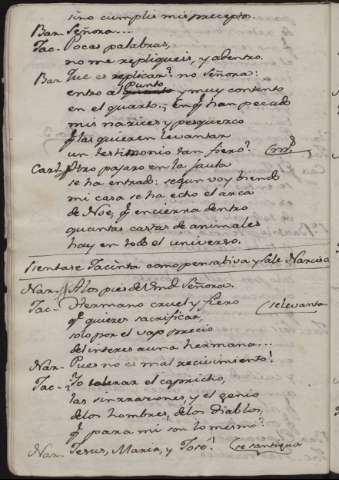 sino cumplir mi precepto.
Bar. Señora...
Jac. Pocas palabras,
no me repliqueis, y adentro.
Bar. Que es replicar? no Señora:
entro al punto y muy contento
en el quarto. En q.e han pecado
mis narices y pesquezo
q.e las quieren levantar
un testimonio tan fiero?
Carl. Otro pajaro en la jaula
se ha entrado: segun voy biendo
mi casa se ha echo el arca
de Noe, q.e encierra dentro
quantas castas de animales
hay en todo el universo.
Sientase Jacinta como pensativa y sale Narciso
Nar. A los pies de Vmd Señora.
Jac. Hermano cruel y fiero se levanta
q.e quieres sacrificar
solo por el vapo precio
del interes a una hermana...
Nar. Pues no es mal recivimiento!
Jac. Yo tolerar el capricho,
las sinrrazones, y el genio
de los hombres, de los Diablos,
q.e para mi son lo mesmo?
Nar. Jesus, Maria, y José! se santigua